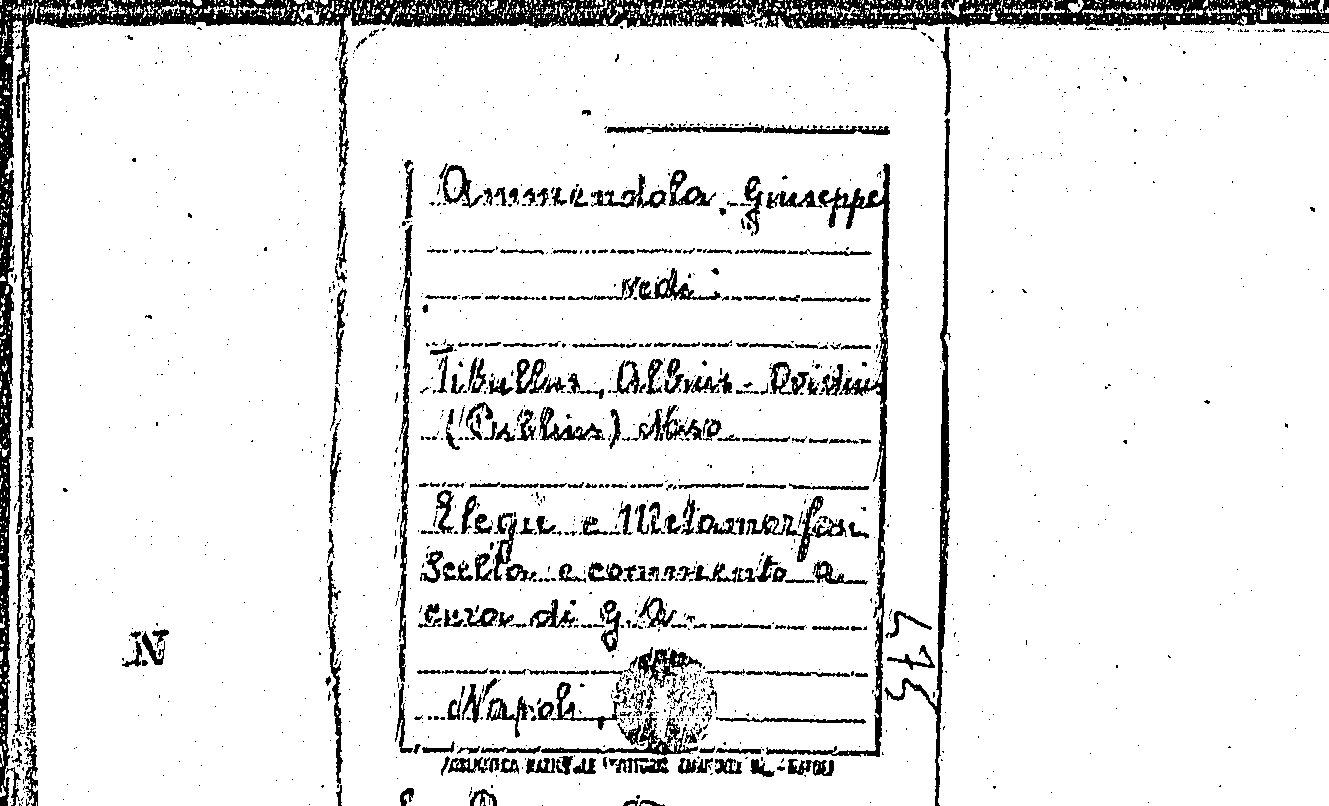 Ammendola, Giuseppe
vedi :
Tibullus, Albius - Ovidius
(Publius) Naso
Elegie e Metamorfosi
Scelta e commento a
cura di G. A.
Napoli,
BIBLIOTECA NAZIONALE "VITTORIO EMANUELE III" - NAPOLI
N